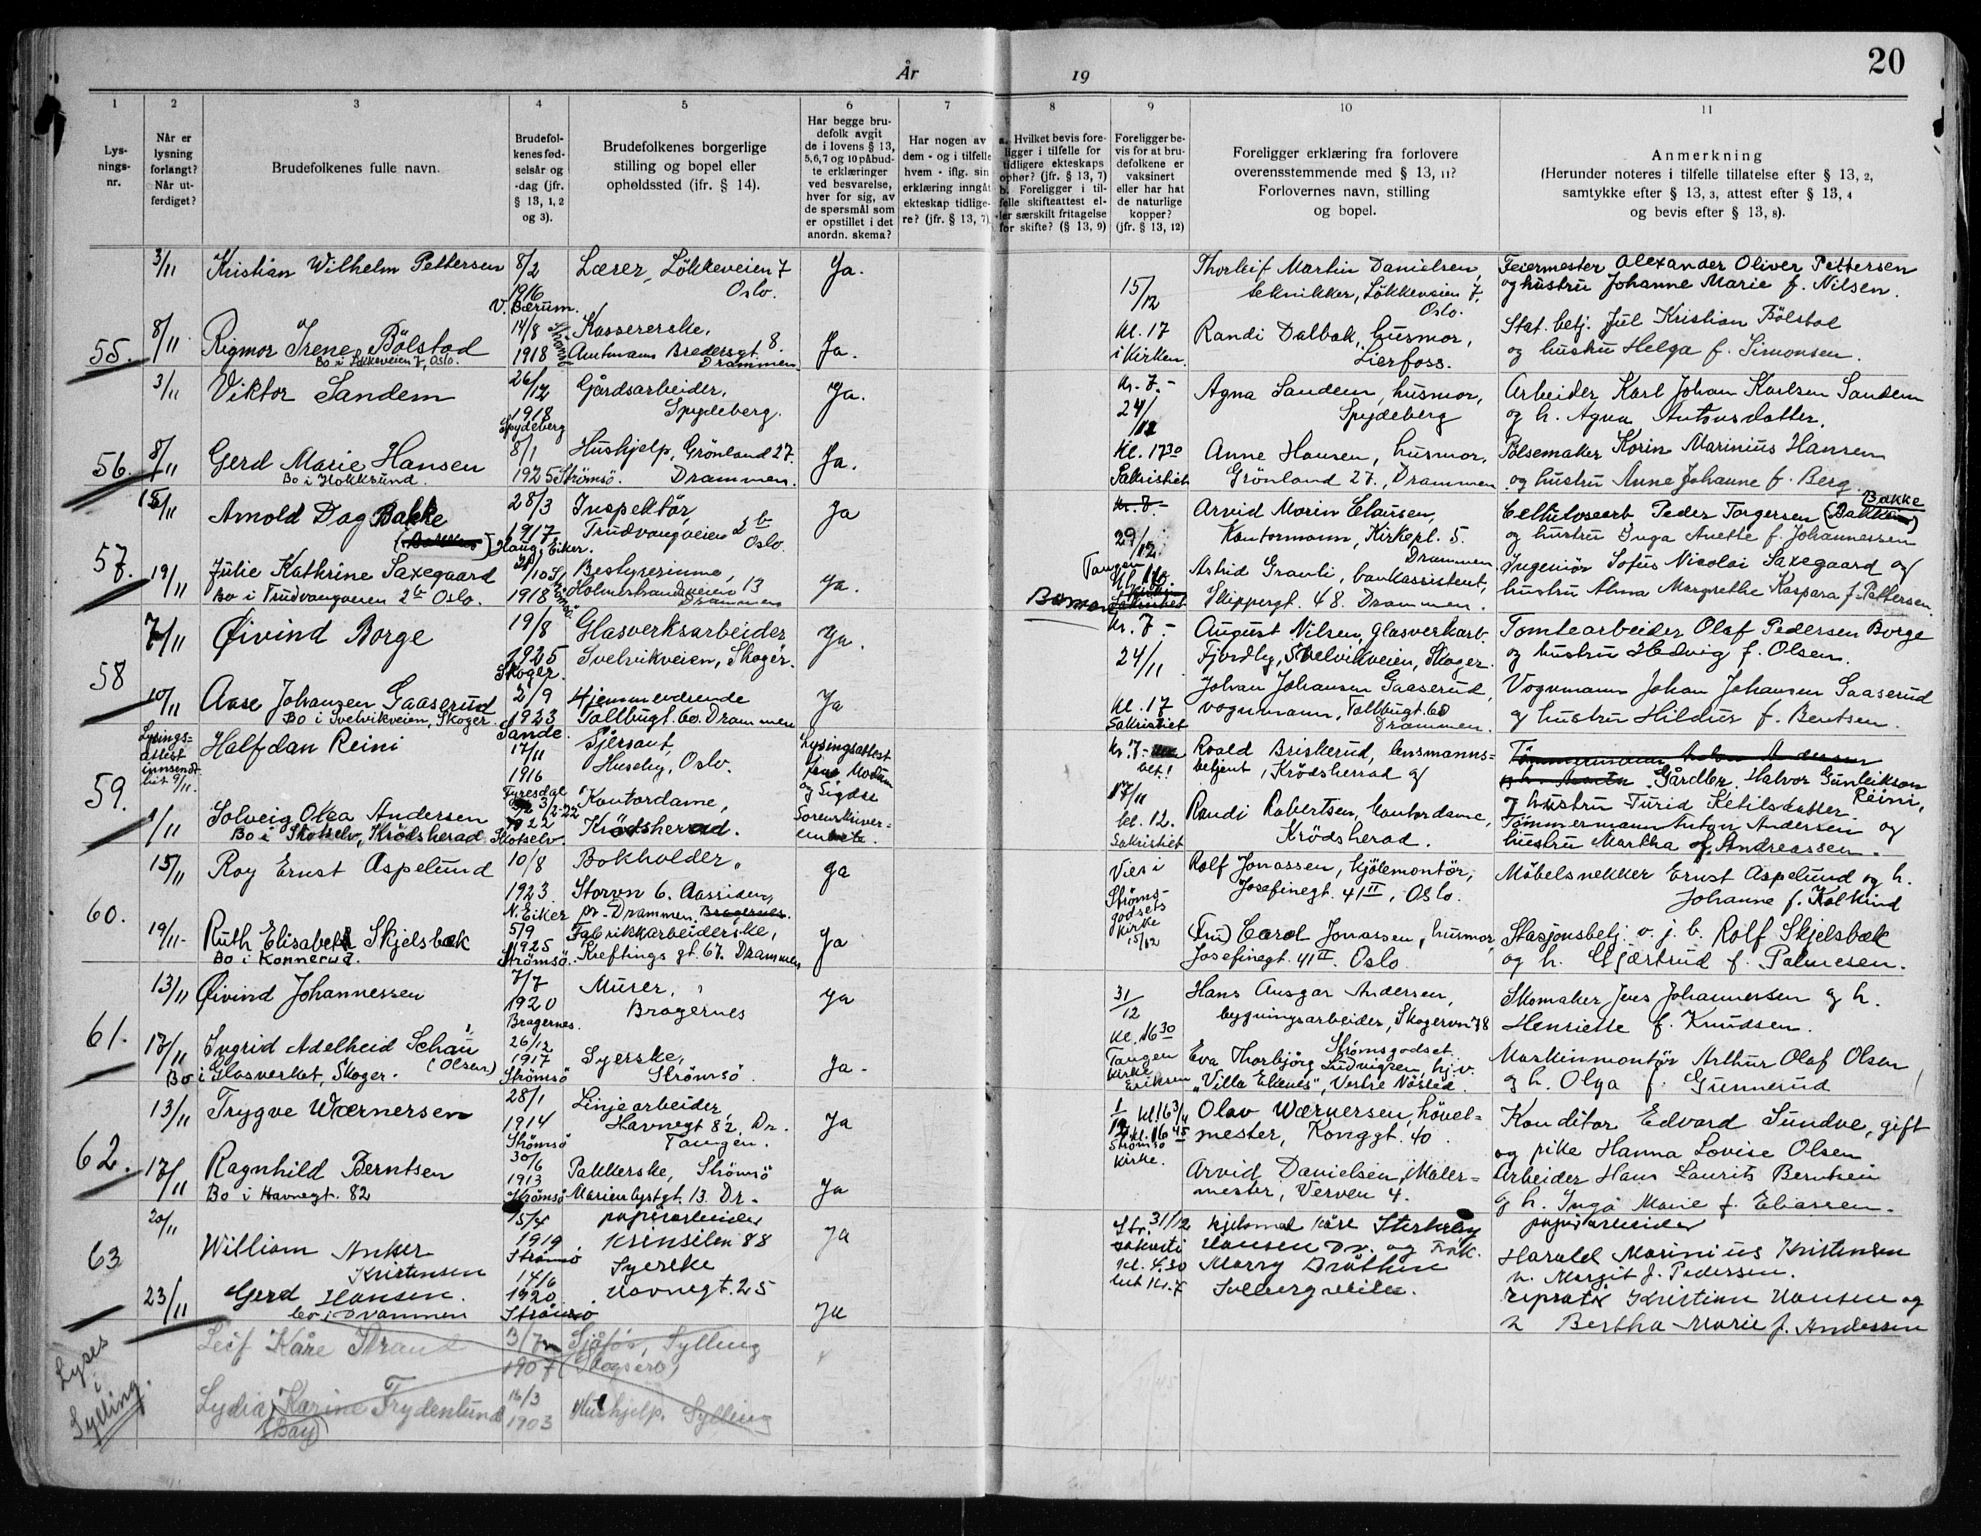 År 19
20
1 2 3 4 5 6 7 8 9 10 11
Lysnings-nr.
Når er lysning forlangt? Når utferdiget?
Brudefolkenes fulle navn.
Brudefolkenes fødselsår og -dag (jfr. § 13, 1, 2 og 3).
Brudefolkenes borgerlige stilling og bopel eller opholdssted (jfr. § 14).
Har begge brudefolk avgit de i lovens § 13, 5,6,7 og 10 påbudte erklæringer ved besvarelse, hver for sig, av de spørsmål som er opstillet i det anordn. skema?
Har nogen av dem - og i tilfelle hvem - iflg. sin erklæring inngåt ekteskap tidligere? (jfr. § 13, 7).
a. Hvilket bevis foreligger i tilfelle for tidligere ekteskaps ophør? (jfr. § 13, 7) b. Foreligger i tilfelle skifteattest eller særskilt fritagelse for skifte? (§ 13, 9)
Foreligger bevis for at brudefolkene er vaksinert eller har hat de naturlige kopper? (jfr. § 13, 12)
Foreligger erklæring fra forlovere overensstemmende med § 13, 11? Forlovernes navn, stilling og bopel.
Anmerkning (Herunder noteres i tilfelle tillatelse efter § 13, 2, samtykke efter § 13, 3, attest efter § 13, 4 og bevis efter § 13, 8).
3/11 Kristian Wilhelm Pettersen 8/2 1916 V. Bærum. Lærer, Løkkeveien 7 Oslo. Ja. 15/12 Thorleif Martin Danielsen, teknikker, Løkkeveien 7, Oslo. Feiermester Alexander Oliver Pettersen og hustru Johanne Marie f. Nilsen.
55. 8/11 Rigmor Irene Bölstad Bo i Løkkeveien 7, Oslo. 14/8 1918 Strömsö Kassererske, Amtmann Bredersgt. 8. Drammen. Ja. kl. 17 i Kirken. Randi Dalbak, husmor, Lierfoss. Stat. betj. Jul Kristian Bölstad og hustru Helga f. Simonsen.
3/11 Viktor Sandem 26/12 1918 Spydeberg Gårdsarbeider, Spydeberg. Ja. Kr. 7.- 24/12 Agna Sandem, husmor, Spydeberg Arbeider Karl Johan Karlsen Sandem og h. Agna Antonsdatter.
56. 8/11 Gerd Marie Hansen Bo i Hokksund. 8/1 1925 Strömsö. Hushjelp, Grönland 27. Drammen. Ja. Kl. 17 30 Sakristiet Anne Hansen, husmor, Grönland 27, Drammen Pölsemaker Korin Marinius Hansen og hustru Anne Johanne f. Berg.
15/11 Arnold Dag Bakke (Bakken) 28/3 1917. Haug, Eiker. Inspektör, Trudvangveien 2 b Oslo. Ja Kr. 7.- 29/12 Arvid Morin Clausen, Kontormann, Kirkepl. 5. Drammen Cellulosearb Peder Torgersen (Bakken) Bakke og hustru Inga Anette f. Johannessen
57. 19/11 Julie Kathrine Saxegaard Bo i Trudvangveien 2 b Oslo. /10 1918 Strömsö. Bestyrerinne, Holmestrandsveien 13 Drammen Ja. Tangen Kl. Sakristiet Astrid Granli, bankassistent, Skippergt. 48. Drammen. Ingeniør Sofus Nicolai Saxegaard og hustru Alma Margrethe Kaspara f. Pettersen.
58 7/11 Øivind Borge 19/8 1925 Skoger. Glasverksarbeider Svelvikveien, Skoger. Ja. Kr. 7.- 24/11 August Nilsen, glasverkarb. Fjordby, Svelvikveien, Skoger. Tomtearbeider Olaf Pedersen Borge og hustru Hedvig f. Olsen.
10/11 Aase Johansen Gaaserud Bo i Svelvikveien, Skoger. 2/9 1923 Sande. Hjemmeværende Tollbugt. 60. Drammen Ja Kl. 17 Sakristiet Johan Johansen Gaaserud, vognmann, Tollbugt. 60 Drammen. Vognmann Johan Johansen Gaaserud og hustru Hildur f. Bentsen.
59. Lysings= attest innsendt hit 9/11. Halfdan Reini 17/11 1916 Fyresdal Sjersant, Huseby, Oslo. Lysingsattest fra Modum og Sigdal Sorenskriver= embete. Kr. 7.- bet.! 17/11 Roald Briskerud, lensmanns= betjent, Krödsherad og Tømmermann Anton Andersen og h. Martha Gårdbr. Halvor Gunleikson Reini, og hustru Turid Ketilsdatter.
1/11 Solveig Olga Andersen Bo i Skotselv, Krödsherad. 1922 Skotselv. Kontordame, Krödsherad. kl. 12. Sakristiet Randi Robertsen, kontordame, Krödsherad. Tömmermann Anton Andersen og hustru Martha f. Andreassen.
60. 15/11 Roy Ernst Aspelund 10/8 1923. N. Eiker Bokholder, Storvn 6. Aassiden, pr. Drammen. Bragernes. ja Vies i Strömsgodsets kirke 15/12 Rolf Jonassen, kjölemontör, Josefinegt. 41 II, Oslo. Möbelsnekker Ernst Aspelund og h. Johanne f. Kolkind
19/11 Ruth Elisabeth Skjelsbæk Bo i Konnerud. 5/9 1925 Strömsö. Fabrikkarbeiderske, Kreftings gt. 67. Drammen Ja (Fru) Carol Jonassen, husmor, Josefinegt. 41 II. Oslo. Stasjonsbetj. v. j. b. Rolf Skjelsbæk og h. Gjærtrud f. Palmesen.
61. 13/11 Øivind Johannessen 7/7 1920 Bragernes. Murer, Bragernes Ja 31/12 Kl. 16 30 Hans Ansgar Andersen, bygningsarbeider, Skogervn 78 Strømsgodset. Skomaker Jens Johannessen og h. Henriette f. Knudsen.
17/11 Ingrid Adelheid Schau (Olsen) Bo i Glasverket, Skoger. 26/12 1917 Strömsö Syerske, Strömsö. Ja. Tangen kirke Eriksen Eva Thorbjörg Ludvigsen, hj.v. "Villa Elenes", Vestre Nösted. Maskinmontör Arthur Olaf Olsen og h. Olga f. Gunnerud
62. 13/11 Trygve Wærnersen 28/1 1914 Strömsö Linjearbeider, Havnegt 82, Dr. Tangen. Ja 1/12 kl. 16 3/4 kl. 16 45 Strömsö Kirke. Olav Wærnersen, hövel= mester, Konggt. 40. Konditor Edvard Sundve, gift og pike Hanna Lovise Olsen
17/11 Ragnhild Berntsen Bo i Havnegt. 82 30/6 1913 Strömsö Pakkerske, Strömsö Marienlystgt. 13. Dr. Ja Arvid Danielsen, Maler= mester, Verven 4. Arbeider Hans Laurits Berntsen og h. Inga Marie f. Eliassen.
63 20/11 William Anker Kristensen 15/4 1919 Strömsö papirarbeider Krinsilen 88 Ja Str. 31/12 sakristi Kl. 4.30 bet. Kr. 7 Kåre Hansen Dr. og Frk. Marry Bråthen Solbergveien. papirarbeider Harald Marinius Kristensen h. Margit f. Pedersen.
23/11 Gerd Hansen. bor i Drammen 14/6 1920 Strömsö Syerske Havnegt. 25 Ja reparatör Kristian Hansen og h. Bertha Marie f. Andersen
Lyses i Sylling. Leif Kåre Strand 3/7 1907 Sjåför, Sylling (Skogserv)
Lydia Karine Frydenlund (Bay) 16/3 1903 Hushjelp, Sylling